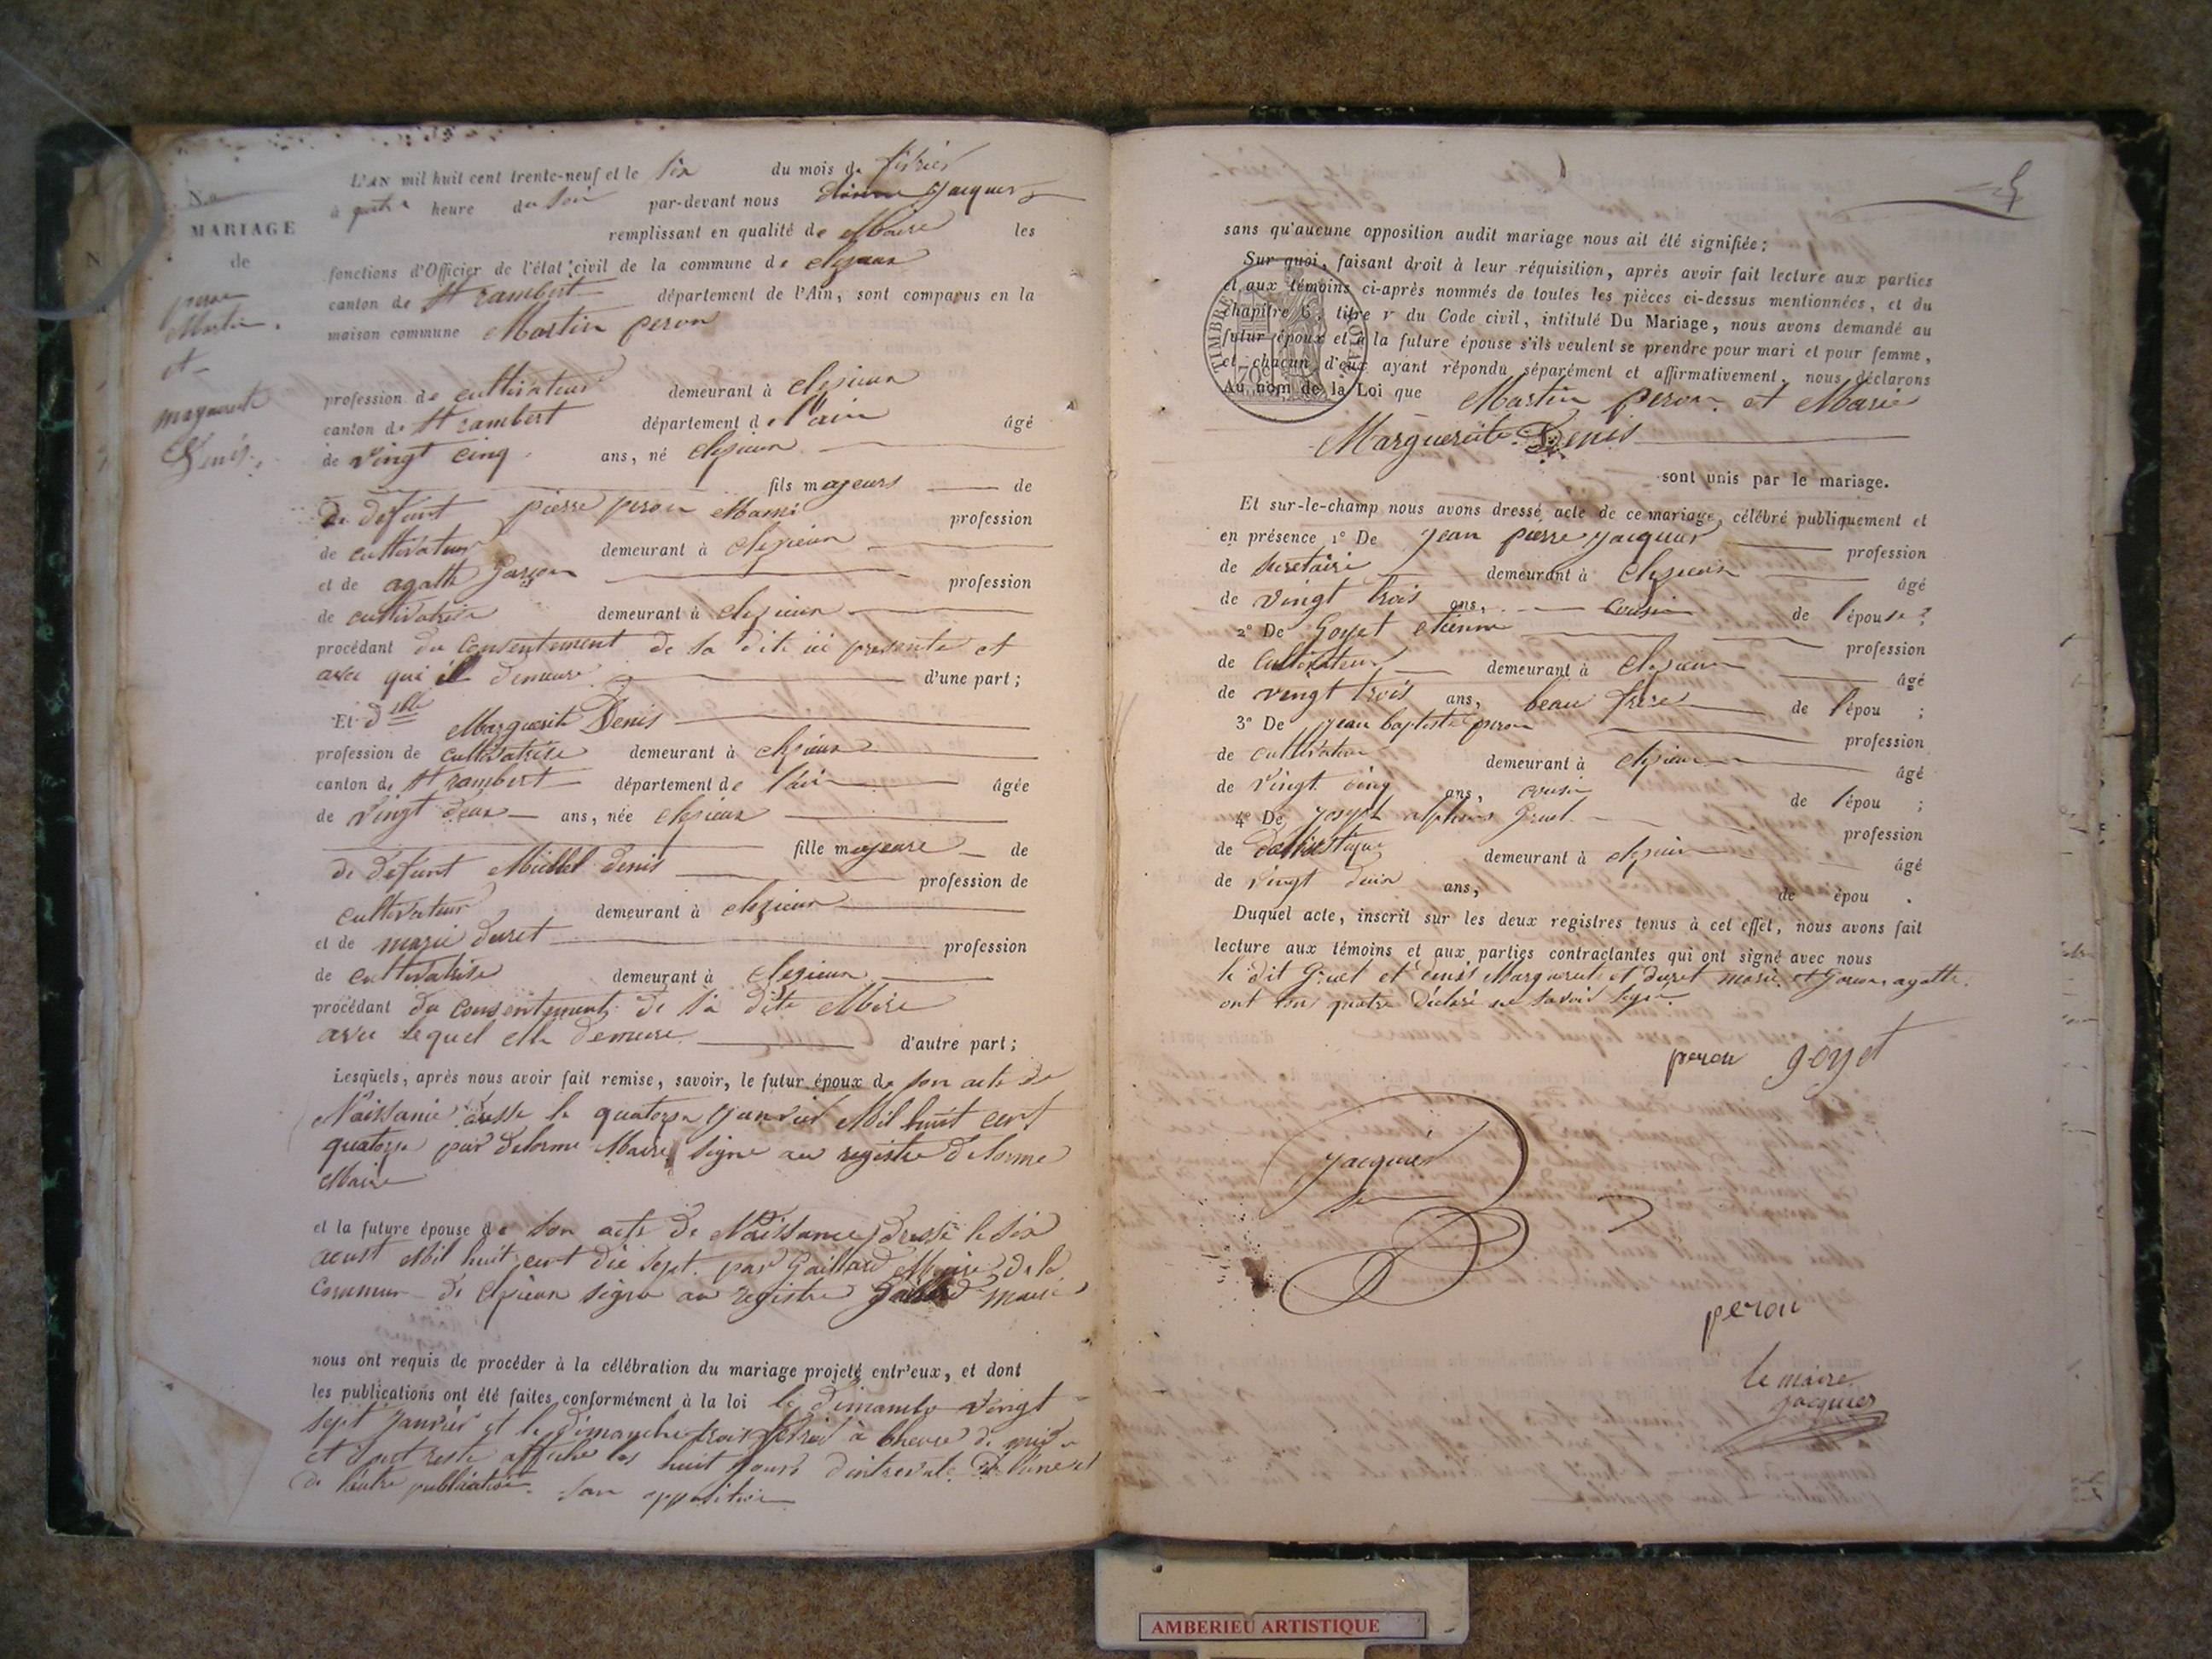 No
MARIAGE
de
peron
Martin.
et
marguerite
Denis.
L'AN mil huit cent trente-neuf et le Six du mois de février
à quatre heure du Soir par-devant nous Jacques
remplissant en qualité de Maire les
fonctions d'Officier de l'état civil de la commune de cleyzieux
canton de St rambert département de l'Ain, sont comparus en la
maison commune Martin peron
profession de cultivateur demeurant à cleyzieux
canton de St rambert département de l'ain âgé
de vingt cinq ans, né cleyzieux
fils majeurs de
De defunt pierre peron profession
de cultivateur demeurant à cleyzieux
et de agatte profession
de cultivatrice demeurant à cleyzieux
procédant du consentement de sa dite ici presente et
avec qui il demeure d'une part ;
Et dlle Marguerite Denis
profession de cultivatrice demeurant à cleyzieux
canton de St rambert département de l'ain âgée
de vingt deux ans, née cleyzieux
fille majeure de
de defunt Michel denis profession de
cultivateur demeurant à cleyzieux
et de marie duret profession
de cultivatrise demeurant à cleyzieux
procédant du consentement de sa dite Mère
avec lequel elle demeure d'autre part ;
Lesquels, après nous avoir fait remise, savoir, le futur époux de son acte de
Naissance le quatorze janvier Mil huit cent
quatorze par delorme Maire signé au registre delorme
Maire
et la future épouse de son acte de Naissance le six
aoust Mil huit cent dix sept par Gaillard Maire de la
commune de cleyzieux signé au registre maire
nous ont requis de procéder à la célébration du mariage projeté entr'eux, et dont
les publications ont été faites conformément à la loi le dimanche vingt
sept janvier et le dimanche trois fevrier à l'heure de midi
et reste affiché les huit jours d'interval de l'une et
de l'autre publication. sans opposition
sans qu'aucune opposition audit mariage nous ait été signifiée ;
Sur quoi, faisant droit à leur réquisition, après avoir fait lecture aux parties
et aux témoins ci-après nommés de toutes les pièces ci-dessus mentionnées, et du
chapitre 6, titre v du Code civil, intitulé Du Mariage, nous avons demandé au
futur époux et à la future épouse s'ils veulent se prendre pour mari et pour femme,
et chacun d'eux ayant répondu séparément et affirmativement, nous déclarons
Au nom de la Loi que Martin peron et Marie
Marguerite Denis
sont unis par le mariage.
TIMBRE ROYAL
70c
Et sur-le-champ nous avons dressé acte de ce mariage, célébré publiquement et
en présence 1° De jean pierre jacquier profession
de secretaire demeurant à cleyzieux âgé
de vingt trois ans, cousin de l'épouse ;
2° De Goyet etienne profession
de cultivateur demeurant à cleyzieux âgé
de vingt trois ans, beau frère de l'épou ;
3° De jean baptiste peron profession
de cultivateur demeurant à cleyzieux âgé
de vingt cinq ans, cousin de l'épou ;
4° De joseph Gruel profession
de demeurant à cleyzieux âgé
de vingt ans, de épou .
Duquel acte, inscrit sur les deux registres tenus à cet effet, nous avons fait
lecture aux témoins et aux parties contractantes qui ont signé avec nous
le dit Gruel et denis Marguerite et duret marie et agatte
ont tous quatre déclaré ne savoir signer
peron goyet
jacquier
peron
le maire
jacquier
AMBERIEU ARTISTIQUE